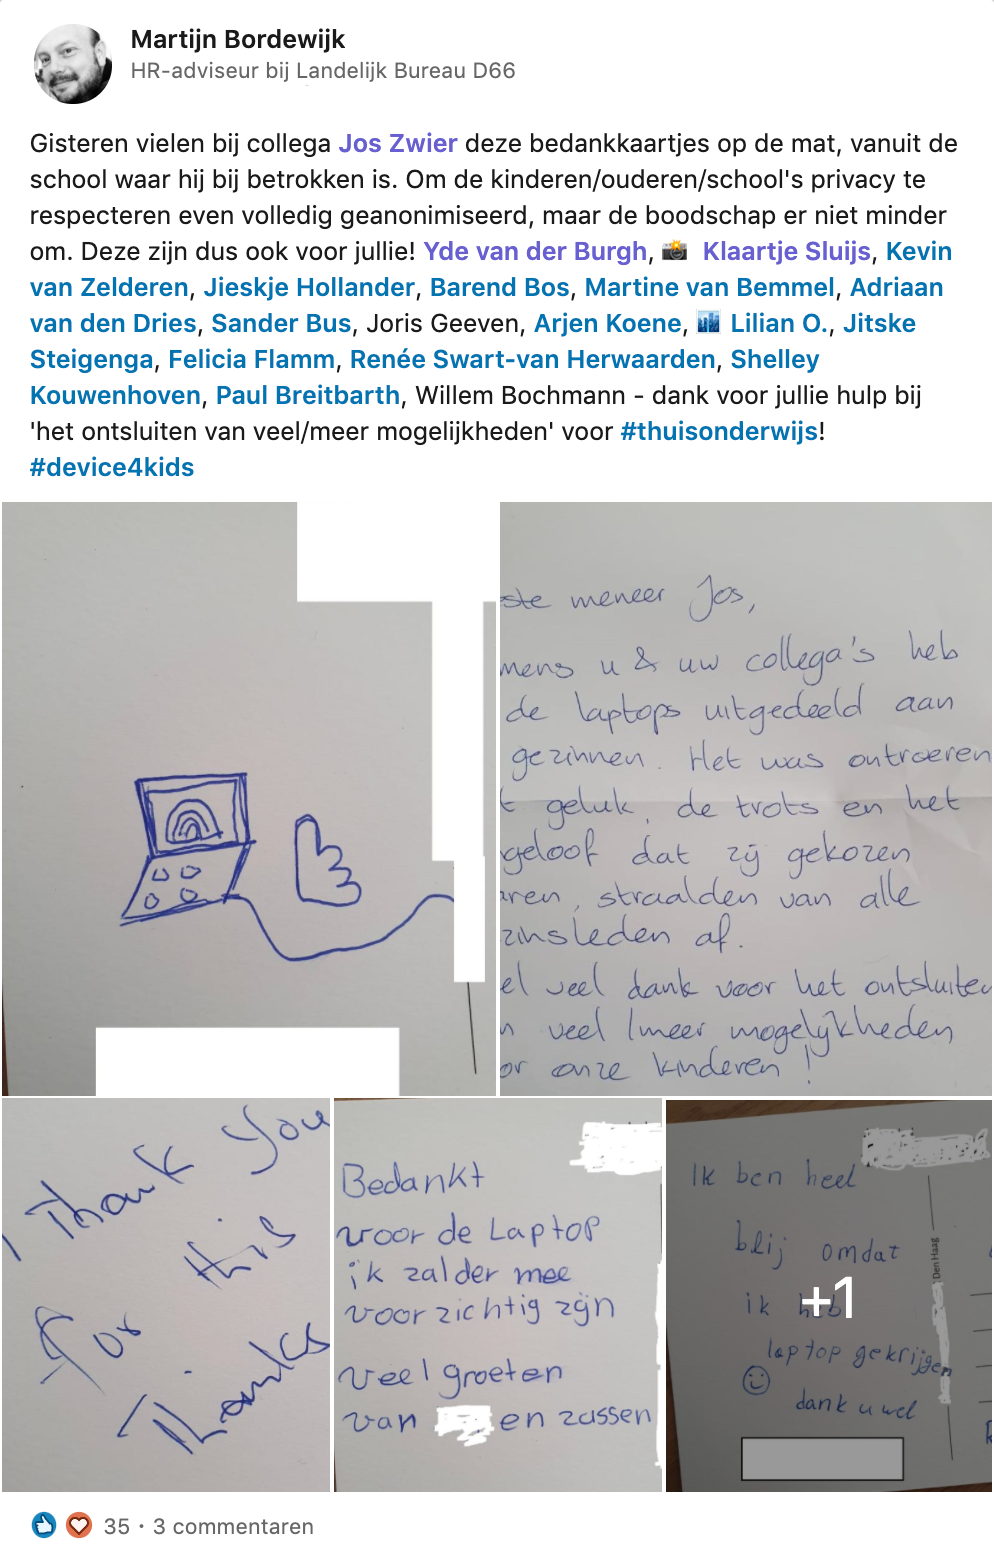 Martijn Bordewijk
HR-adviseur bij Landelijk Bureau D66
Gisteren vielen bij collega Jos Zwier deze bedankkaartjes op de mat, vanuit de
school waar hij bij betrokken is. Om de kinderen/ouderen/school's privacy te
respecteren even volledig geanonimiseerd, maar de boodschap er niet minder
om. Deze zijn dus ook voor jullie! Yde van der Burgh, 📸 Klaartje Sluijs, Kevin
van Zelderen, Jieskje Hollander, Barend Bos, Martine van Bemmel, Adriaan
van den Dries, Sander Bus, Joris Geeven, Arjen Koene, 🏙 Lilian O., Jitske
Steigenga, Felicia Flamm, Renée Swart-van Herwaarden, Shelley
Kouwenhoven, Paul Breitbarth, Willem Bochmann - dank voor jullie hulp bij
'het ontsluiten van veel/meer mogelijkheden' voor #thuisonderwijs!
#device4kids
ste meneer Jos,
mens u & uw collega's heb
de laptops uitgedeeld aan
gezinnen. Het was ontroeren
t geluk, de trots en het
geloof dat zij gekozen
aren, straalden van alle
zinsleden af.
el veel dank voor het ontsluiten
n veel/meer mogelijkheden
or onze kinderen!
Thank You
for this
Thanks
Bedankt
voor de Laptop
ik zal der mee
voorzichtig zijn
veel groeten
van en zussen
Ik ben heel
blij omdat
ik heb
laptop gekrijgen
dank u wel
Den Haag
+1
35 · 3 commentaren